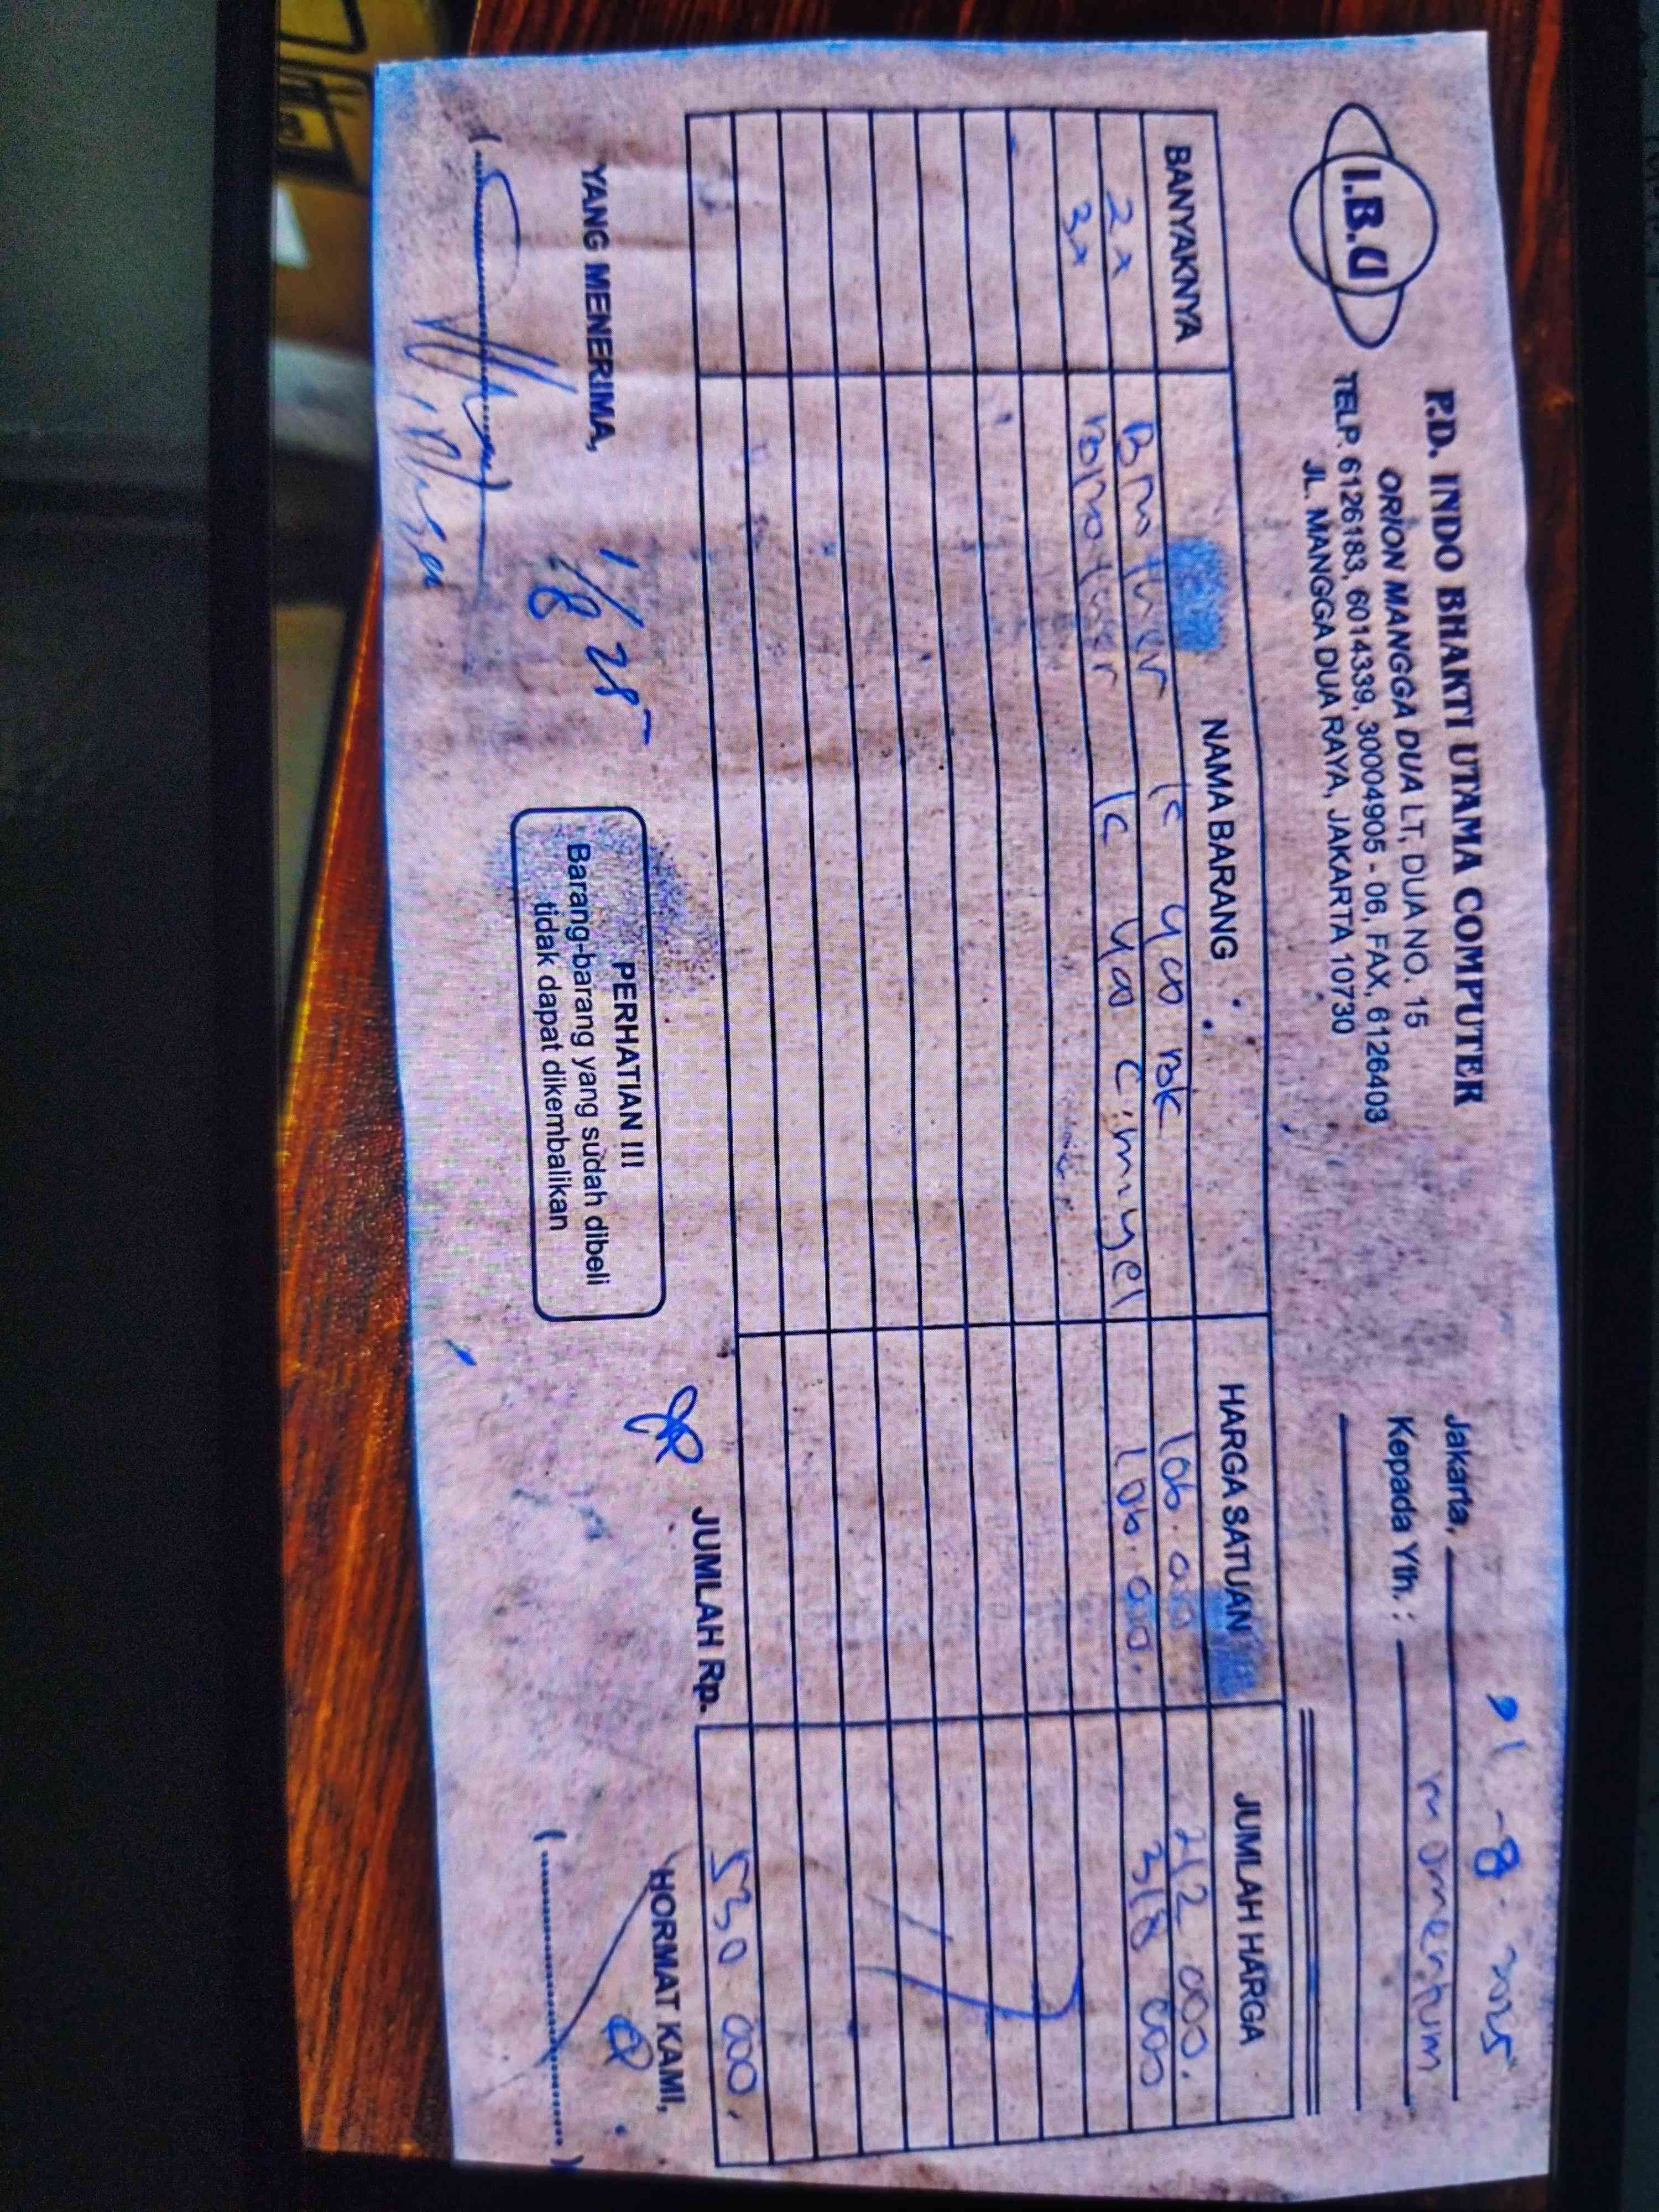 I.B.U
P.D. INDO BHAKTI UTAMA COMPUTER
ORION MANGGA DUA LT, DUA NO. 15
TELP. 6126183, 6014339, 30004905 - 06, FAX, 6126403
JL. MANGGA DUA RAYA, JAKARTA 10730
Jakarta, 01-8-2025
Kepada Yth. : momentum
BANYAKNYA NAMA BARANG HARGA SATUAN JUMLAH HARGA
2x 106.000 212.000.
3x 106.000. 318 000
JUMLAH Rp. 530 000.
YANG MENERIMA,
1/8 25
PERHATIAN !!!
Barang-barang yang sudah dibeli
tidak dapat dikembalikan
HORMAT KAMI,